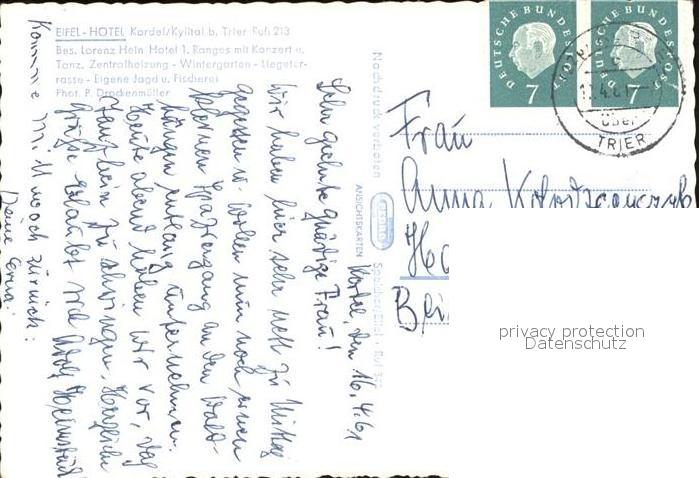 EIFEL-HOTEL Kordel/Kylltal b. Trier Ruf 213
Bes. Lorenz Hein Hotel 1. Ranges mit Konzert u.
Tanz. Zentralheizung - Wintergarten - Liegeter-
rasse - Eigene Jagd u. Fischerei
Phot. P. Drockenmüller
Nachdruck verboten
ANSICHTSKARTEN
DEUTSCHE BUNDESPOST
7
DEUTSCHE BUNDESPOST
7
über
TRIER
Frau
Anna
Kordel, den 16.4.61
Sehr geehrte gnädige Frau!
Wir haben hier sehr nett zu Mittag
gegessen u. wollen nun noch einen
kleinen Spaziergang an den Wald-
hängen entlang unternehmen.
Heute abend haben wir vor, das
Tanzbein zu schwingen. Herzliche
Grüße erlaubt sich Adolf
Komme Mittwoch zurück!
Deine
privacy protection
Datenschutz